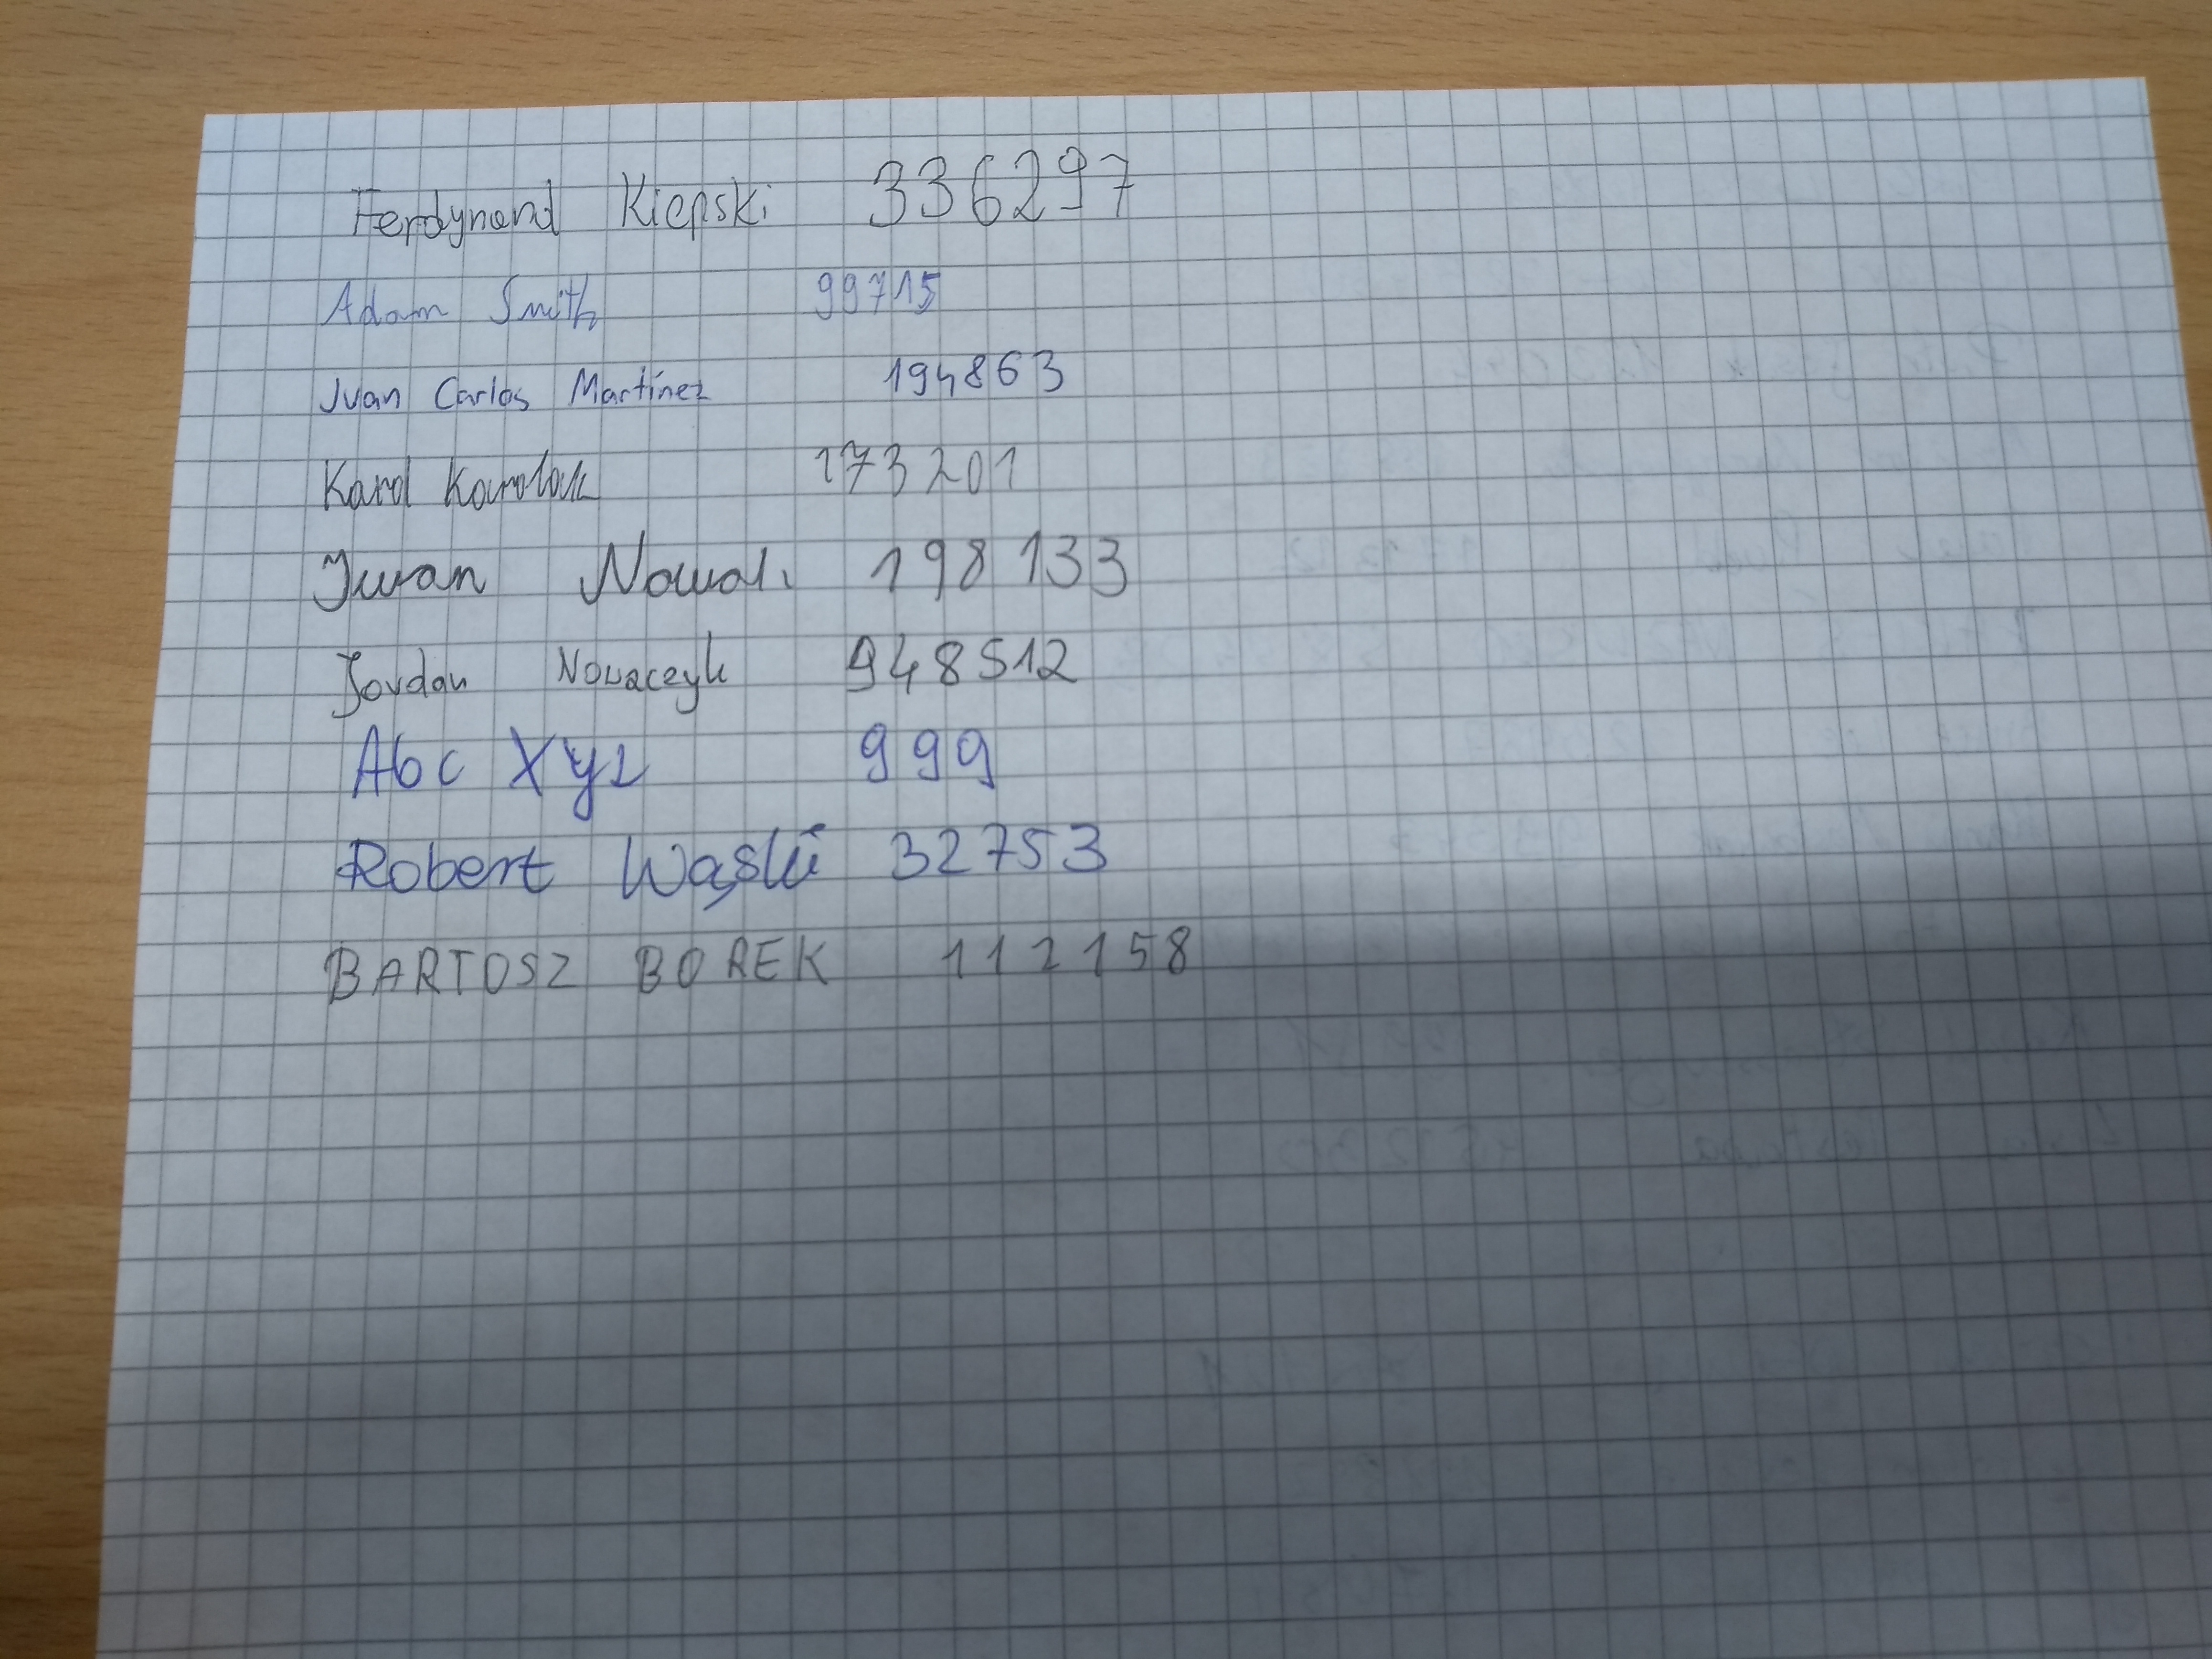 Ferdynand Kiepski 336297
Adam Smith 99715
Juan Carlos Martínez 194863
Karol Karolak 173201
Iwan Nowak 198133
Jordan Nowaczyk 948512
Abc Xyz 999
Robert Wąski 32753
BARTOSZ BOREK 112158